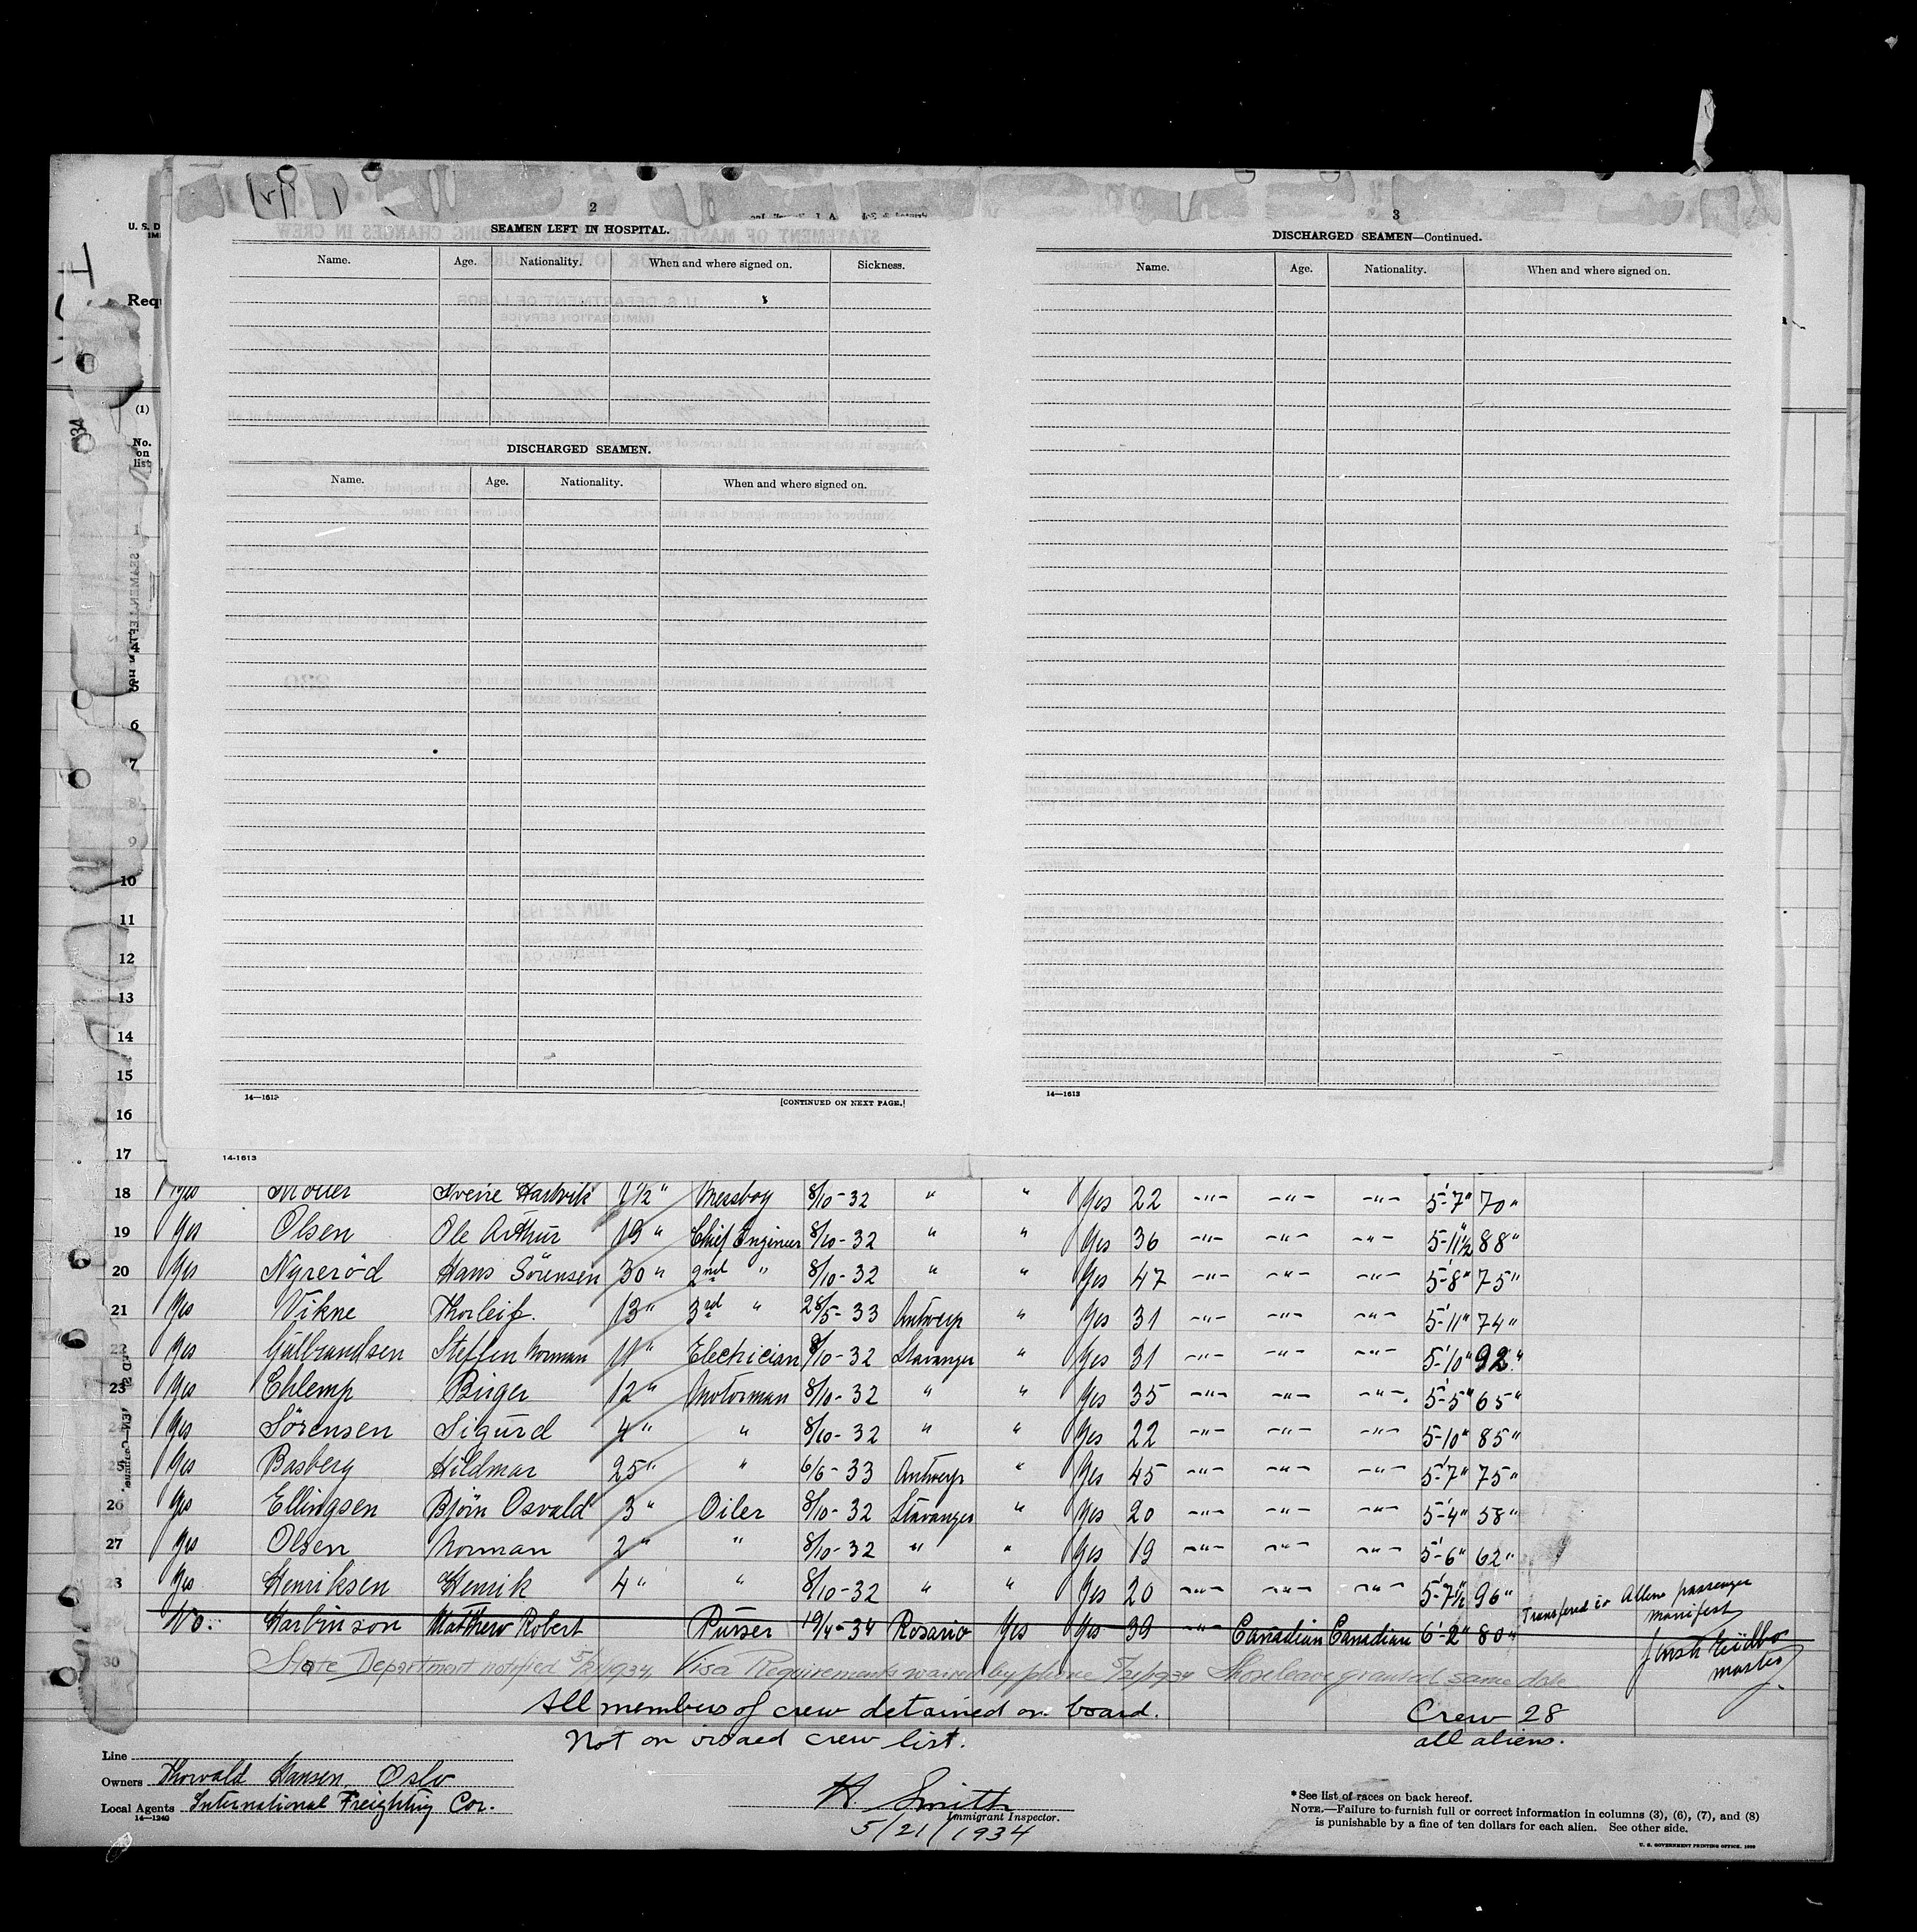 U. S. D
Requ
(1)
No. on list
2
SEAMEN LEFT IN HOSPITAL.
Name. Age. Nationality. When and where signed on. Sickness.
DISCHARGED SEAMEN.
Name. Age. Nationality. When and where signed on.
14—1613 [CONTINUED ON NEXT PAGE.]
14-1613
3
DISCHARGED SEAMEN—Continued.
Name. Age. Nationality. When and where signed on.
14—1613
6
7
8
9
10
11
12
13
14
15
16
17
18 Yes 1½" Messboy 8/10-32 " " Yes 22 -"- -"- -"- 5'-7" 70"
19 Yes Olsen Ole Arthur 19" Chief Engineer 8/10-32 " " Yes 36 -"- -"- -"- 5'-11½" 88"
20 Yes Nyreröd Hans Sörensen 30" 2nd " 8/10-32 " " Yes 47 -"- -"- -"- 5'-8" 75"
21 Yes Vikne Thorleif. 13" 3rd " 28/5-33 Antwerp " Yes 31 -"- -"- -"- 5'-11" 74"
22 Yes Gulbrandsen Steffen Norman 11" Electrician 8/10-32 Stavanger " Yes 31 -"- -"- -"- 5'-10" 92"
23 Yes Chlemp Birger 12" Motorman 8/10-32 " " Yes 35 -"- -"- -"- 5'-5" 65"
Yes Sörensen Sigurd 4" " 8/10-32 " " Yes 22 -"- -"- -"- 5'-10" 85"
25 Yes Basberg Hildmar 25" " 6/6-33 Antwerp " Yes 45 -"- -"- -"- 5'-7" 75"
26 Yes Ellingsen Björn Osvald 3" Oiler 8/10-32 Stavanger " Yes 20 -"- -"- -"- 5'-4" 58"
27 Yes Olsen Norman 2" " 8/10-32 " " Yes 19 -"- -"- -"- 5'-6" 62"
28 Yes Henriksen Henrik 4" " 8/10-32 " " Yes 20 -"- -"- -"- 5'-7½" 96"
No. Harbinson Matthew Robert Purser 19/4-34 Rosario Yes Yes 39 -"- Canadian Canadian 6'-2" 80" Transfered to Aliens passenger manifest
master
30 State Department notified 5/21/1934 Visa Requirements waived by phone 5/21/1934 Shoreleave granted same date
All members of crew detained on board. Crew 28
Not on visaed crew list. all aliens.
Line
Owners Thorvald Hansen, Oslo
Local Agents International Freighting Cor.
14—1240
H. Smith
Immigrant Inspector.
5/21/1934
* See list of races on back hereof.
NOTE.—Failure to furnish full or correct information in columns (3), (6), (7), and (8)
is punishable by a fine of ten dollars for each alien. See other side.